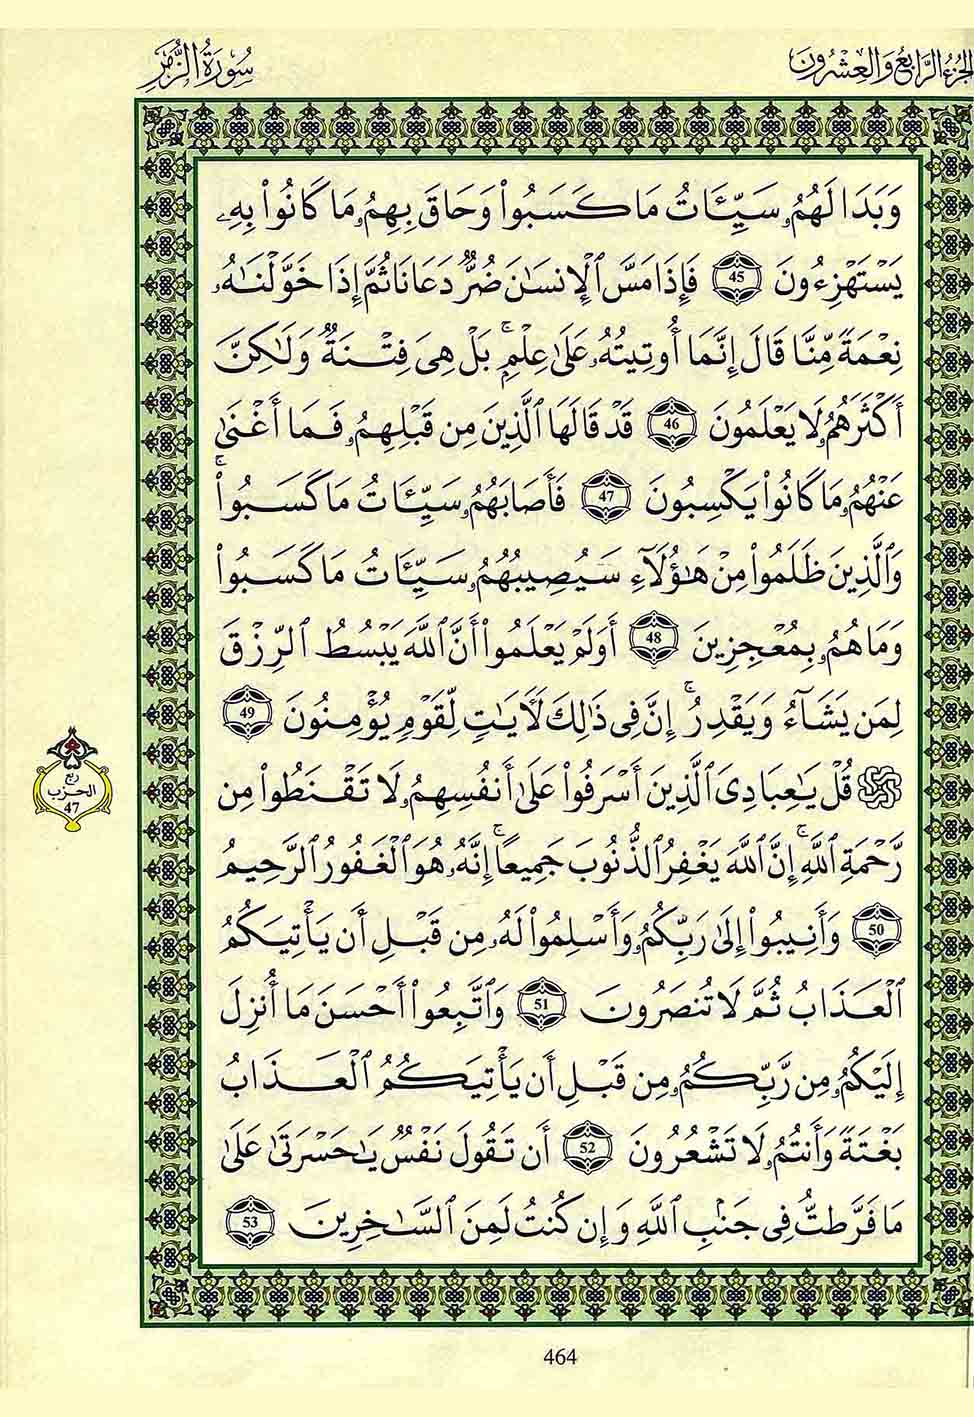 الجزء الرابع والعشرون
سورة الزمر
وَبَدَا لَهُمُۥ سَيِّـَٔاتُ مَا كَسَبُوا۟ وَحَاقَ بِهِمُۥ مَا كَانُوا۟ بِهِۦ
يَسْتَهْزِءُونَ 45 فَإِذَا مَسَّ ٱلْإِنسَٰنَ ضُرٌّ دَعَانَا ثُمَّ إِذَا خَوَّلْنَٰهُۥ
نِعْمَةً مِّنَّا قَالَ إِنَّمَا أُوتِيتُهُۥ عَلَىٰ عِلْمٍۭ ۚ بَلْ هِىَ فِتْنَةٌ وَلَٰكِنَّ
أَكْثَرَهُمُۥ لَا يَعْلَمُونَ 46 قَدْ قَالَهَا ٱلَّذِينَ مِن قَبْلِهِمُۥ فَمَا أَغْنَىٰ
عَنْهُمُۥ مَا كَانُوا۟ يَكْسِبُونَ 47 فَأَصَابَهُمُۥ سَيِّـَٔاتُ مَا كَسَبُوا۟ ۚ
وَٱلَّذِينَ ظَلَمُوا۟ مِنْ هَٰٓؤُلَآءِ سَيُصِيبُهُمُۥ سَيِّـَٔاتُ مَا كَسَبُوا۟
وَمَا هُمُۥ بِمُعْجِزِينَ 48 أَوَلَمْ يَعْلَمُوا۟ أَنَّ ٱللَّهَ يَبْسُطُ ٱلرِّزْقَ
لِمَن يَشَآءُ وَيَقْدِرُ ۚ إِنَّ فِى ذَٰلِكَ لَأٓيَٰتٍ لِّقَوْمٍ يُؤْمِنُونَ 49
قُلْ يَٰعِبَادِىَ ٱلَّذِينَ أَسْرَفُوا۟ عَلَىٰ أَنفُسِهِمُۥ لَا تَقْنَطُوا۟ مِن
رَّحْمَةِ ٱللَّهِ ۚ إِنَّ ٱللَّهَ يَغْفِرُ ٱلذُّنُوبَ جَمِيعًا ۚ إِنَّهُۥ هُوَ ٱلْغَفُورُ ٱلرَّحِيمُ
50 وَأَنِيبُوا۟ إِلَىٰ رَبِّكُمُۥ وَأَسْلِمُوا۟ لَهُۥ مِن قَبْلِ أَن يَأْتِيَكُمُ
ٱلْعَذَابُ ثُمَّ لَا تُنصَرُونَ 51 وَٱتَّبِعُوا۟ أَحْسَنَ مَا أُنزِلَ
إِلَيْكُمُۥ مِن رَّبِّكُمُۥ مِن قَبْلِ أَن يَأْتِيَكُمُ ٱلْعَذَابُ
بَغْتَةً وَأَنتُمُۥ لَا تَشْعُرُونَ 52 أَن تَقُولَ نَفْسٌ يَٰحَسْرَتَىٰ عَلَىٰ
مَا فَرَّطتُّ فِى جَنۢبِ ٱللَّهِ وَإِن كُنتُ لَمِنَ ٱلسَّٰخِرِينَ 53
ربع
الحزب
47
464